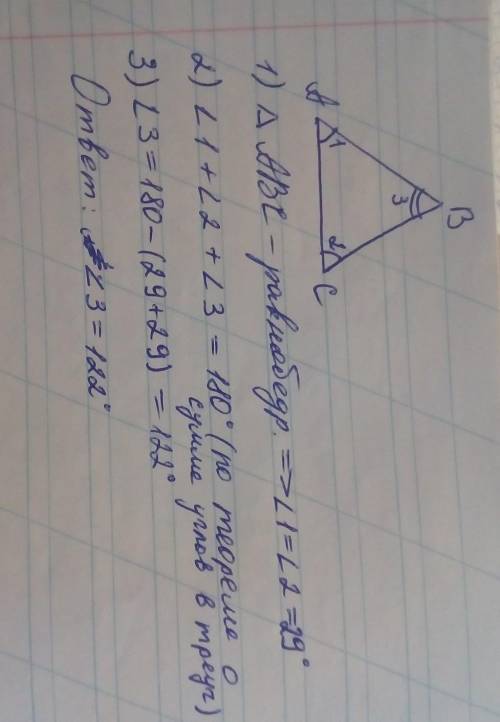 B
3
A 1 2 C
1) Δ ABC - равнобедр. => ∠1 = ∠2 = 29°
2) ∠1 + ∠2 + ∠3 = 180° (по теореме о
сумме углов в треуг)
3) ∠3 = 180 - (29+29) = 122°
Ответ: ∠3 = 122°